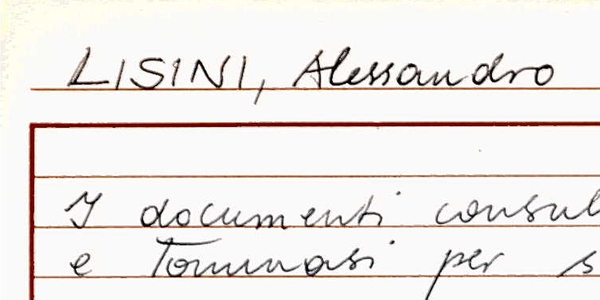 LISINI, Alessandro
I documenti consul
e Tommasi per s